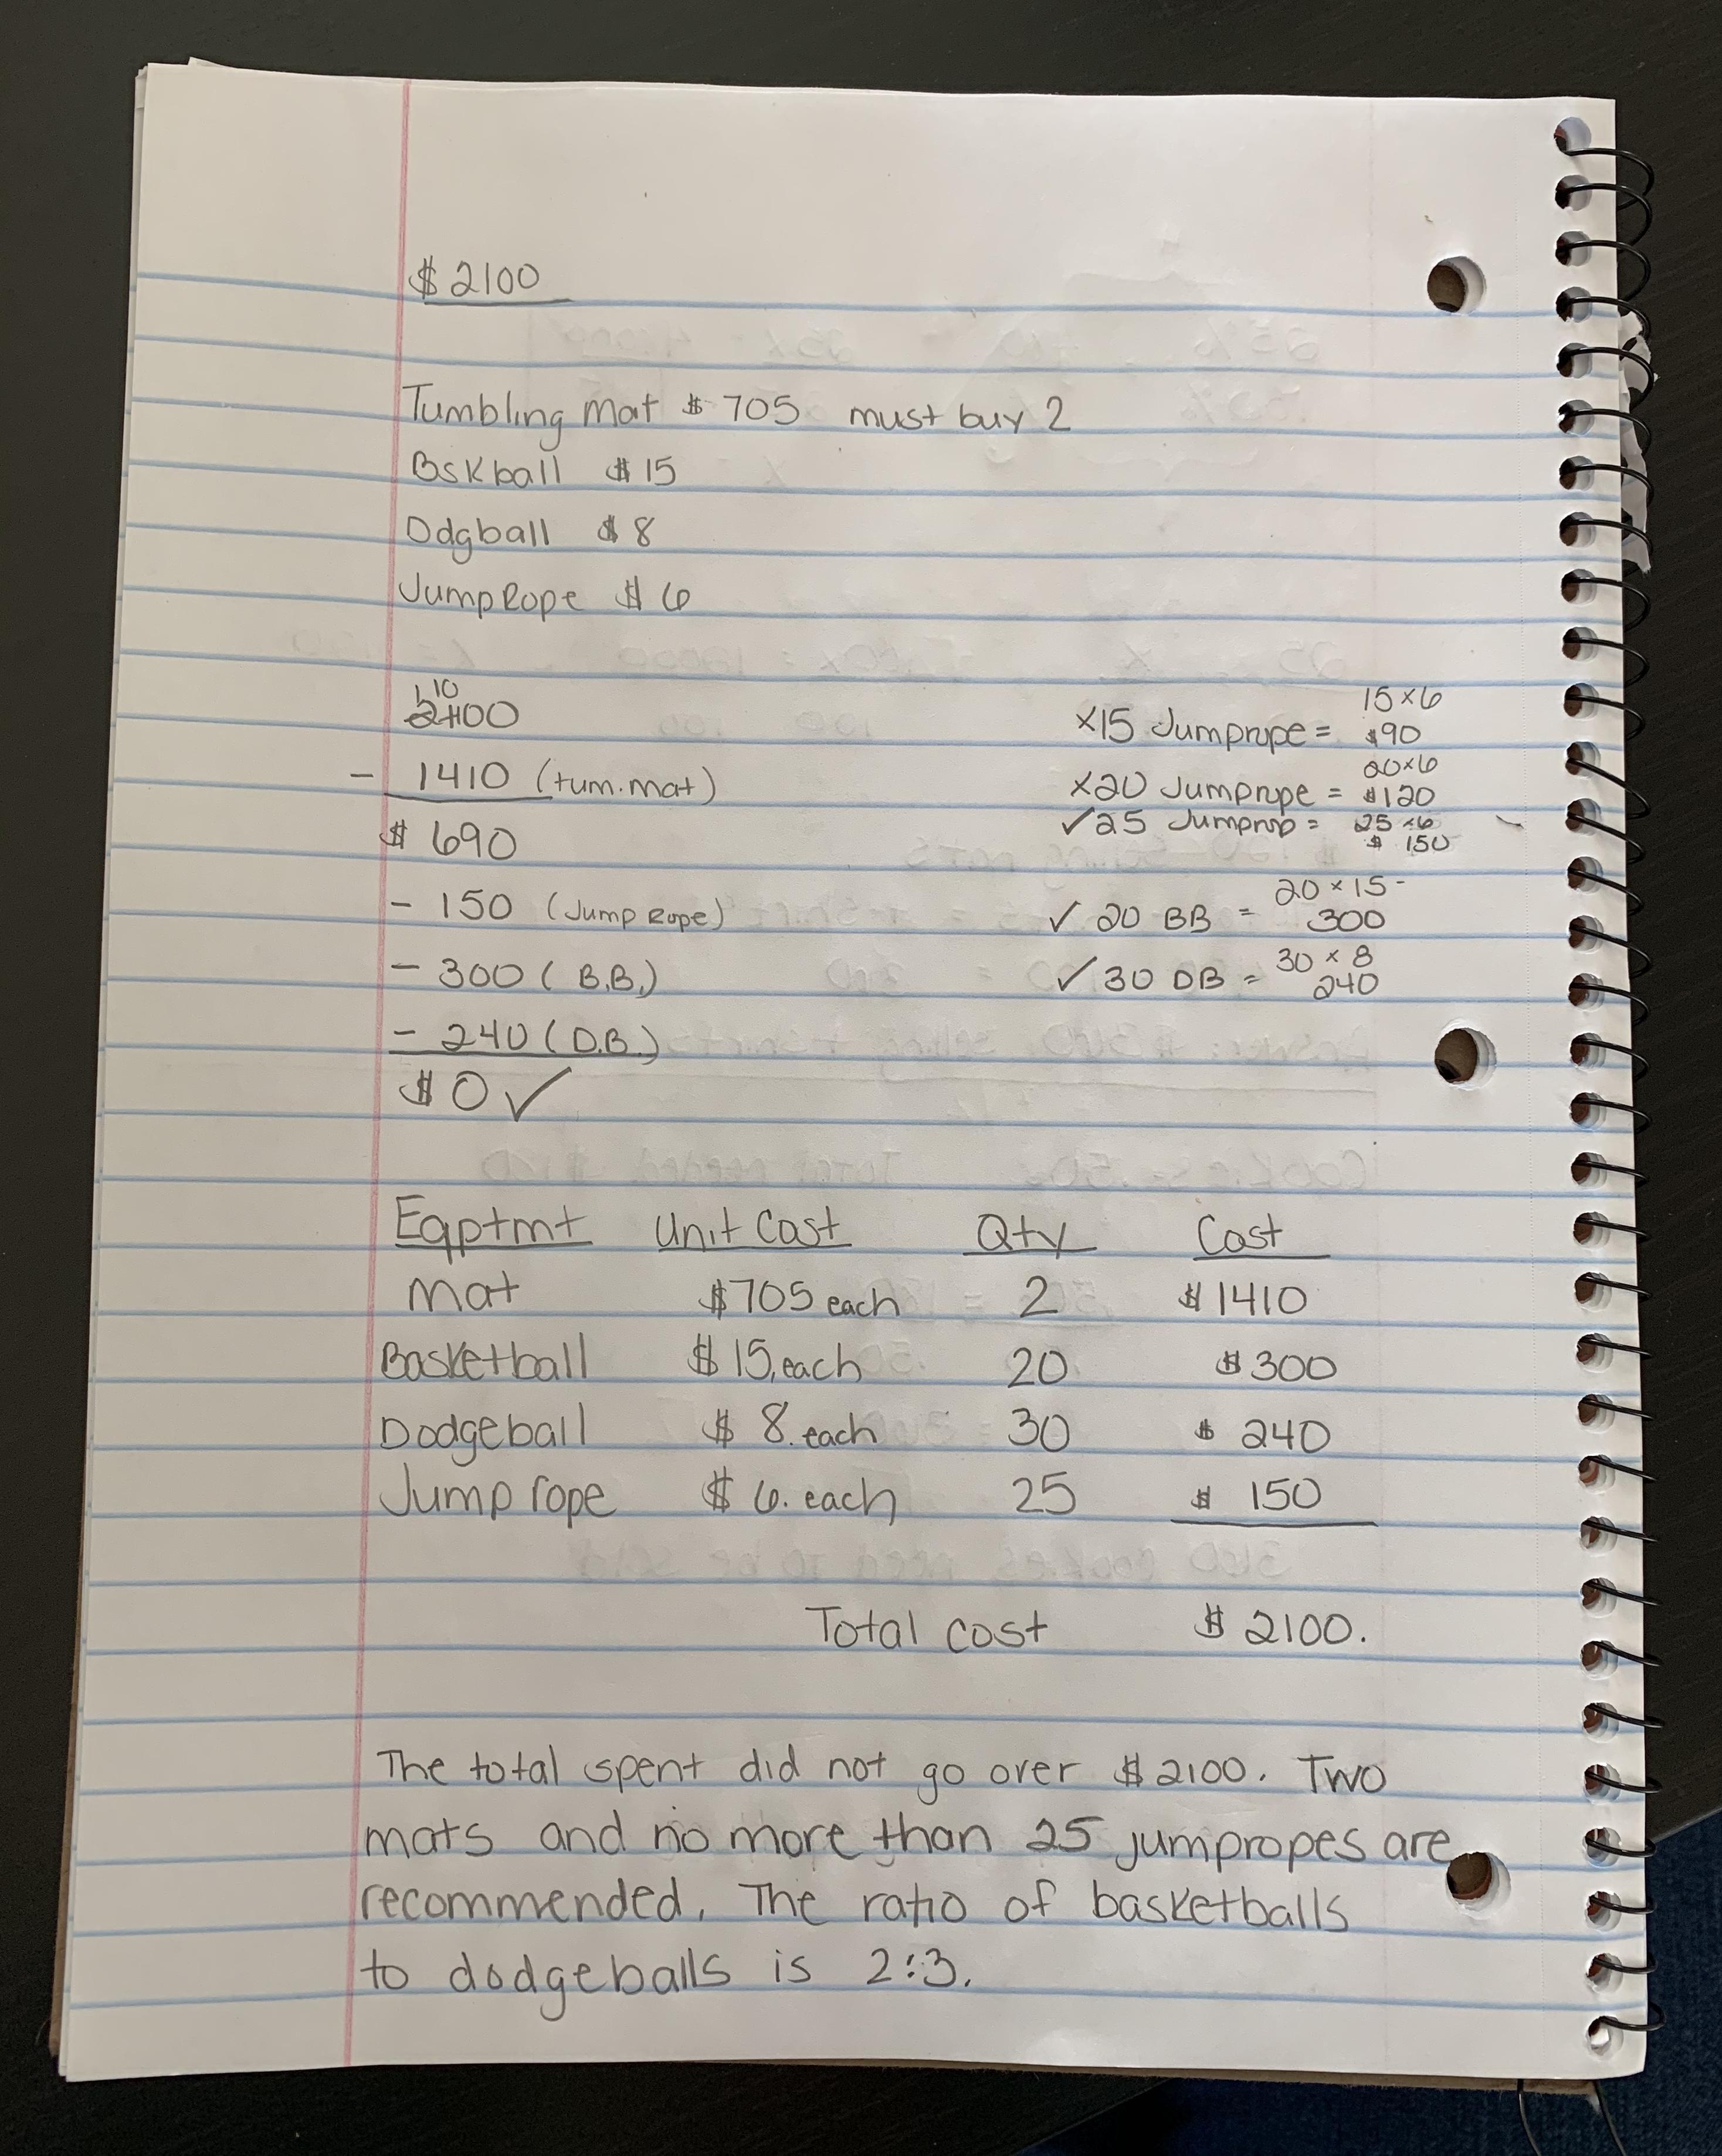 $ 2100
Tumbling mat $ 705 must buy 2
Bskball $ 15
Ddgball $ 8
Jump Rope $ 6
1 10
2100
- 1410 (tum. mat)
$ 690
- 150 (Jump Rope)
- 300 (B.B.)
- 240 (D.B.)
$ 0 ✓
15 x 6
x15 Jumprope = $90
20x6
x20 Jumprope = $120
✓25 Jumprop = 25 x6
$ 150
20 x 15 -
✓ 20 BB = 300
30 x 8
✓ 30 DB = 240
Eqptmt Unit Cost Qty Cost
Mat $705 each 2 $ 1410
Basketball $ 15. each 20 $ 300
Dodgeball $ 8. each 30 $ 240
Jump rope $ 6. each 25 $ 150
Total cost $ 2100.
The total spent did not go over $ 2100. Two
mats and no more than 25 jumpropes are
recommended. The ratio of basketballs
to dodgeballs is 2:3.